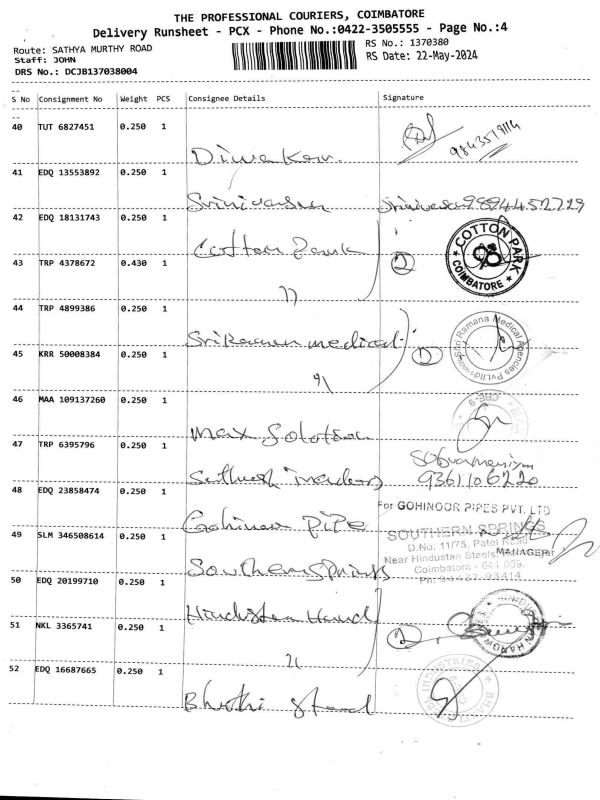 THE PROFESSIONAL COURIERS, COIMBATORE
Delivery Runsheet - PCX - Phone No.:0422-3505555 - Page No.:4
Route: SATHYA MURTHY ROAD
RS No.: 1370380
Staff: JOHN
RS Date: 22-May-2024
DRS No.: DCJB137038004
S No Consignment No Weight PCS Consignee Details Signature
40 TUT 6827451 0.250 1
Diwakar.
9843519114
41 EDQ 13553892 0.250 1
Srinivasan
9994452729
42 EDQ 18131743 0.250 1
Cotton Park
2
COTTON PARK
COIMBATORE
43 TRP 4378672 0.430 1
44 TRP 4899386 0.250 1
Sri Raman medical
2
Shri Ramana Medical Agencies Pvt.Ltd
45 KRR 50008384 0.250 1
46 MAA 109137260 0.250 1
Max
47 TRP 6395796 0.250 1
Traders
9361106220
48 EDQ 23858474 0.250 1
Gohinoor Pipe
For GOHINOOR PIPES PVT. LTD
MANAGER
49 SLM 346508614 0.250 1
Southern Springs
SOUTHERN SPRINGS
D.No. 11/75, Patel Road
Near Hindustan Steels
Coimbatore - 641 009.
50 EDQ 20199710 0.250 1
Hindustan Hard
2
51 NKL 3365741 0.250 1
52 EDQ 16687665 0.250 1
Bharthi Steel
INDUSTRIES